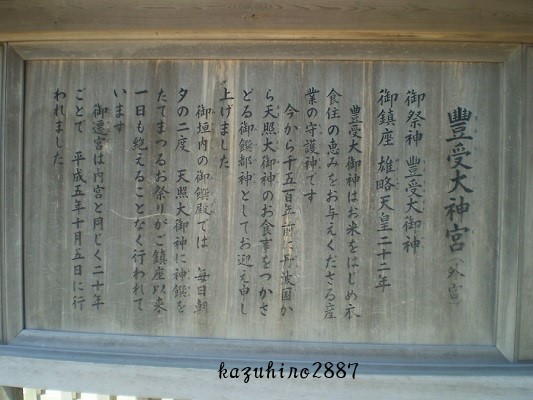 豐受大神宮（外宮）
御祭神 豐受大御神
御鎮座 雄略天皇二十二年
豐受大御神はお米をはじめ衣
食住の恵みをお与えくださる産
業の守護神です
今から千五百年前に丹波国か
ら天照大御神のお食事をつかさ
どる御饌都神としてお迎え申し
上げました
御垣内の御饌殿では 毎日朝
夕の二度 天照大御神に神饌を
たてまつるお祭りがご鎮座以来
一日も絶えることなく行われて
います
御遷宮は内宮と同じく二十年
ごとで 平成五年十月五日に行
われました
kazuhiro2887